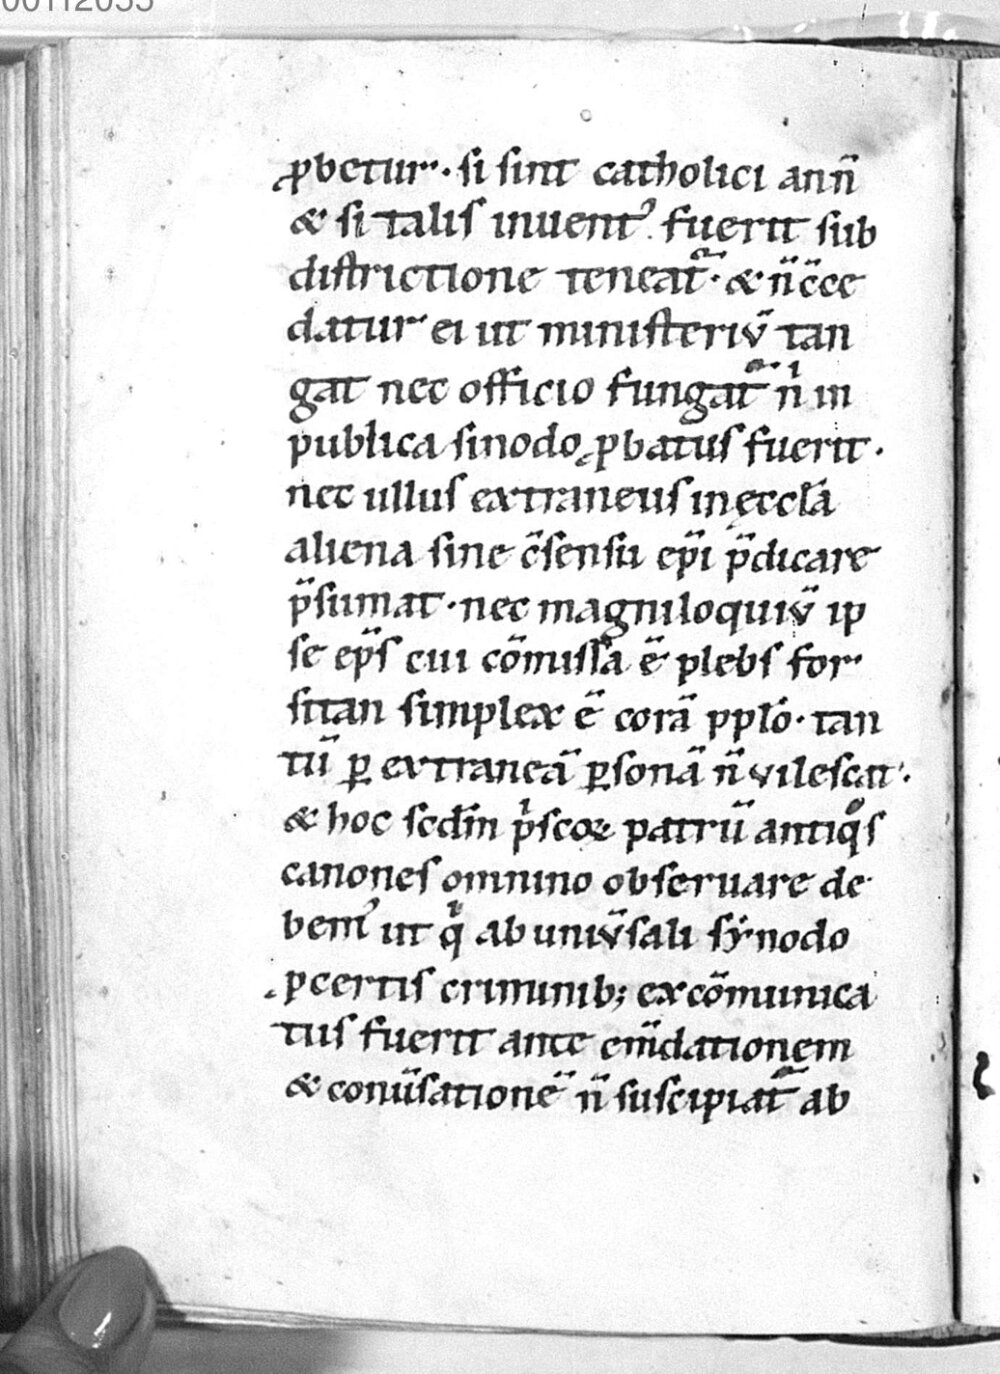 ꝓbetur · si sint catholici ann̄
& si talis inuent᾿ fuerit sub
districtione teneat᷒ · & n̄ c̄ce
datur ei ut ministeriū tan
gat nec officio fungat᷒ nͥ in
publica sinodo ꝓbatus fuerit ·
nec ullus extraneus in ęccl̄a
aliena sine c̄sensu ep̄i p̄dicare
p̄sumat · nec magniloquiū ip
se ep̄s cui cōmissa ē plebs for
sitan simplex ē corā pplō · tan
tū ꝑ extraneā ꝑsonā n̄ vilescat ·
& hoc scdm̄ pͥscoꝝ patrū antiqͦs
canones omnino obseruare de
bem᾿ ut qͥ ab univ̄sali sẏnodo
ꝓ certis criminib; excōmunica
tus fuerit ante em̄dationem
& conūsationē n̄ suscipiat᷒ ab